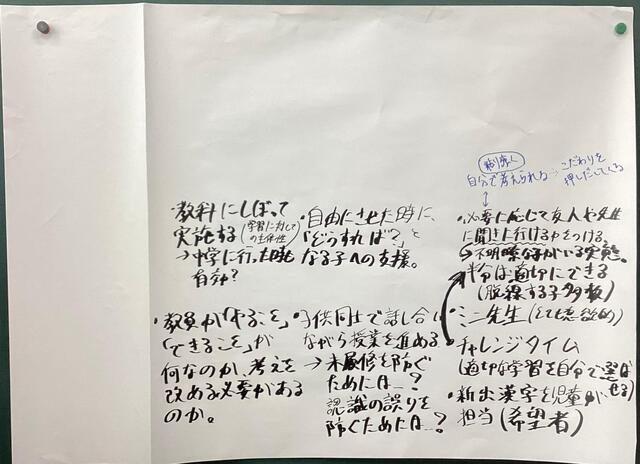 ・教科にしぼって
実施する(学習に対して
の主体性)
→中学に行った時も
有効?
・自由にさせた時に、
「どうすれば?」と
なる子への支援。
・教員が「やること」
「できること」が
何なのか、考えを
改める必要がある
のか。
・子供同士で話し合い
ながら授業を進める
→未履修を防ぐ
ためには…?
認識の誤りを
防ぐためには…?
自分で考えられる→こだわりを
押しだしてくる
・必要に応じて友人や先生
に聞きに行ける力をつける。
不明瞭な子がいる実態。
半分は適切にできる
(脱線する子多数)
・ミニ先生(とても意欲的)
・チャレンジタイム
(適切な学習を自分で選ば
せる)
・新出漢字を児童が
担当(希望者)